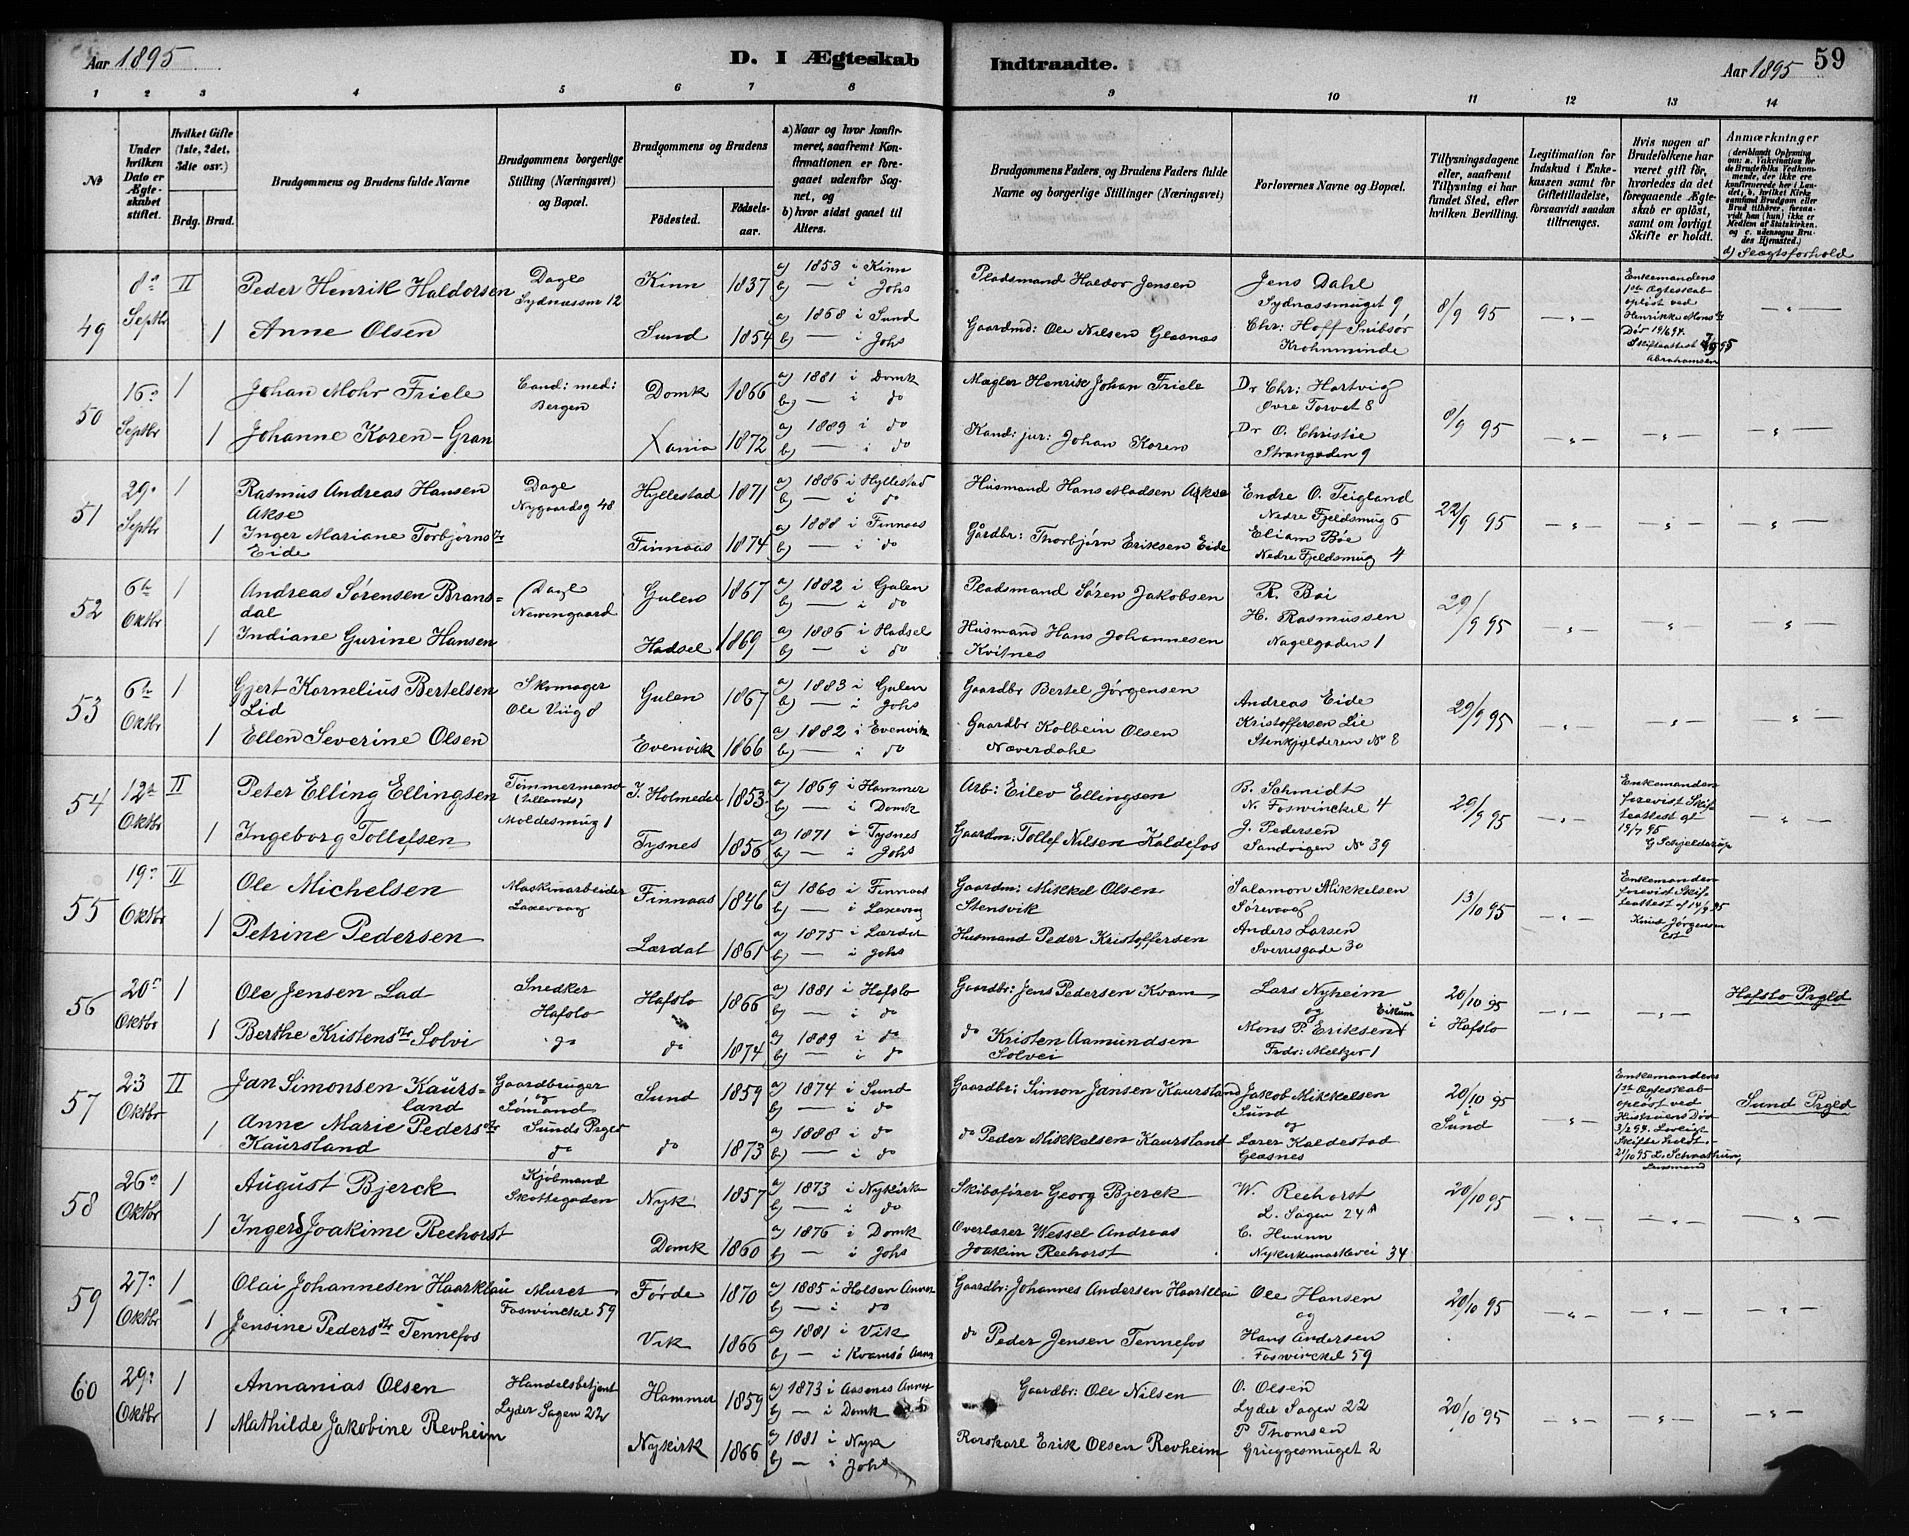 Aar 1895
D. I Ægteskab
Indtraadte.
Aar 1895
59
1 2 3 4 5 6 7 8 9 10 11 12 13 14
No
Under hvilken Dato er Ægteskabet stiftet.
Hvilket Gifte (1ste, 2det, 3die osv.)
Brdg. Brud.
Brudgommens og Brudens fulde Navne
Brudgommens borgerlige Stilling (Næringsvei) og Bopæl.
Brudgommens og Brudens
Fødested. Fødselsaar.
a) Naar og hvor konfirmeret, saafremt Konfirmationen er foregaaet udenfor Sognet, og
b) hvor sidst gaaet til Alters.
Brudgommens Faders, og Brudens Faders fulde Navne og borgerlige Stillinger (Næringsvei)
Forlovernes Navne og Bopæl.
Tillysningsdagene eller, saafremt Tillysning ei har fundet Sted, efter hvilken Bevilling.
Legitimation for Indskud i Enkekassen samt for Giftetilladelse, forsaavidt saadan tiltrænges.
Hvis nogen af Brudefolkene har været gift før, hvorledes da det foregaaende Ægteskab er opløst, samt om lovligt Skifte er holdt.
Anmærkninger
d) Slægtsforhold
49 8de Septbr II Peder Henrik Haldorsen Dagl Sydnæssm 12 Kinn 1837 a) 1853 i Kinn b) — i Johs Pladsmand Haldor Jensen Jens Dahl Sydnæssmuget 9 8/9 95 Enkemandens 1ste Ægteskab opløst ved Henrikke Monsdr Død 19/6 94.
1 Anne Olsen Sund 1854 a) 1868 i Sund b) — i Johs Gaardmd: Ole Nilsen Glesnæs Chr: Hoff Skibsfør Krohnminde
50 16de Septbr 1 Johan Mohr Friele Cand: med: Bergen Domk 1866 a) 1881 i Domk b) — i do Mægler Henrik Johan Friele Dr Chr: Hartvig Øvre Torvet 8 8/9 95
1 Johanne Koren-Gran Xania 1872 a) 1889 i do b) — i do Kand: jur: Johan Koren Dr O. Christie Strangaden 9
51 29de Septbr 1 Rasmus Andreas Hansen Akse Dagl Nygaardsg 48 Hyllestad 1871 a) 1886 i Hyllestad b) — i do Husmand Hans Madsen Akse Endre O. Teigland Nedre Fjeldsmug 5 22/9 95
1 Inger Mariane Torbjørnsdr Eide Finnaas 1874 a) 1888 i Finnaas b) — i do Gårdbr: Thorbjørn Eriksen Eide Eliam Bøe Nedre Fjeldsmug 4
52 6te Oktbr 1 Andreas Sørensen Bransdal Dagl Newengaard Gulen 1867 a) 1882 i Gulen b) — i do Pladsmand Søren Jakobsen R. Boi 29/9 95
1 Indiane Gurine Hansen Hadsel 1869 a) 1886 i Hadsel b) — i do Husmand Hans Johannesen Kvitnes H. Rasmussen Nagelgaden 1
53 6te Oktbr 1 Gjert Kornelius Bertelsen Lid Skomager Ole Viig 8 Gulen 1867 a) 1883 i Gulen b) — i Johs Gaardbr Bertel Jørgensen Andreas Eide 29/9 95
1 Ellen Severine Olsen Evenvik 1866 a) 1882 i Evenvik b) — i do Gaardbr Kolbein Olsen Næverdahl Kristoffersen Lie Stenkjelderen No 8
54 12te Oktbr II Peter Elling Ellingsen Tømmermand Moldesmug 1 Y. Holmedal 1853 a) 1869 i Hammer b) — i Domk Arb: Eilev Ellingsen B. Schmidt N. Foswinckel 4 29/9 95 Enkemanden forevist Skifteattest af 19/7 95 G Schjelderup
1 Ingeborg Tollefsen Tysnes 1856 a) 1871 i Tysnes b) — i Johs Gaardm: Tollef Nilsen Kaldefos J. Pedersen Sandvigen No 39
55 19de Oktbr II Ole Michelsen Maskinarbeider Laxevaag Finnaas 1846 a) 1860 i Finnaas b) — i Laxevaag Gaardm: Mikkel Olsen Stensvik Salamon Mikkelsen Sørevaag 13/10 95 Enkemanden forevist Skifteattest af 14/9 95 Knud Jørgensen
1 Petrine Pedersen Lærdal 1861 a) 1875 i Lærdal b) — i Johs Husmand Peder Kristoffersen Anders Larsen Sverresgade 30
56 20de Oktbr 1 Ole Jensen Lad Snedker Hafslo Hafslo 1866 a) 1881 i Hafslo b) — i do Gaardbr: Jens Pedersen Kvam Lars Nyheim og 20/10 95 i Hafslo Hafslo Prgld
1 Berthe Kristensdr Solvi do do 1874 a) 1889 i do b) — i do do Kristen Aamundsen Solvei Mons P. Eriksen Eikum Frdr: Meltzer 1
57 23 Oktbr II Jan Simonsen Kaursland Gaardbruger og Sømand Sunds Prgld Sund 1859 a) 1874 i Sund b) — i do Gaardbr: Simon Jansen Kaursland Jakob Mikkelsen Sund og 20/10 95 i Sund Enkemandens 1ste Ægteskab opløst ved Hustruens Død 3/2 94. Lovligt Skifte holdt. 21/10 95 Sund Prgld
1 Anne Marie Pedersdr Kaursland do do 1873 a) 1888 i do b) — i do do Peder Mikkelsen Kaursland Lærer Kaldestad Glesnes
58 26de Oktbr 1 August Bjerck Kjøbmand Skottegaden Nyk 1857 a) 1873 i Nykirke b) — i do Skibsfører Georg Bjerck W. Reehorst L. Sagen 24A 20/10 95
1 Inger Joakime Reehorst Domk 1860 a) 1876 i Domk b) — i Johs Overlærer Wessel Andreas Joakim Reehorst Nykirkesmarkevei 34
59 27de Oktbr 1 Olai Johannesen Haarklau Murer Foswinckel 59 Førde 1870 a) 1885 i Holsen Annex b) — i do Gaardbr: Johannes Andersen Haarklau Ole Hansen og 20/10 95
1 Jensine Pedersdtr Tennefos Vik 1866 a) 1881 i Vik b) — i Kvamsø Annex do Peder Jensen Tennefos Hans Andersen Foswinckel 59
60 29de Oktbr 1 Annanias Olsen Handelsbetjent Lyder Sagen 22 Hammer 1859 a) 1873 i Aasenes Annex b) — i Domk Gaardbr: Ole Nilsen O. Olsen Lyder Sagen 22 20/10 95
1 Mathilde Jakobine Revheim Nykirk 1866 a) 1881 i Nyk b) — i Johs Rorskarl Erik Olsen Revheim P Thomsen Grieggesmuget 2